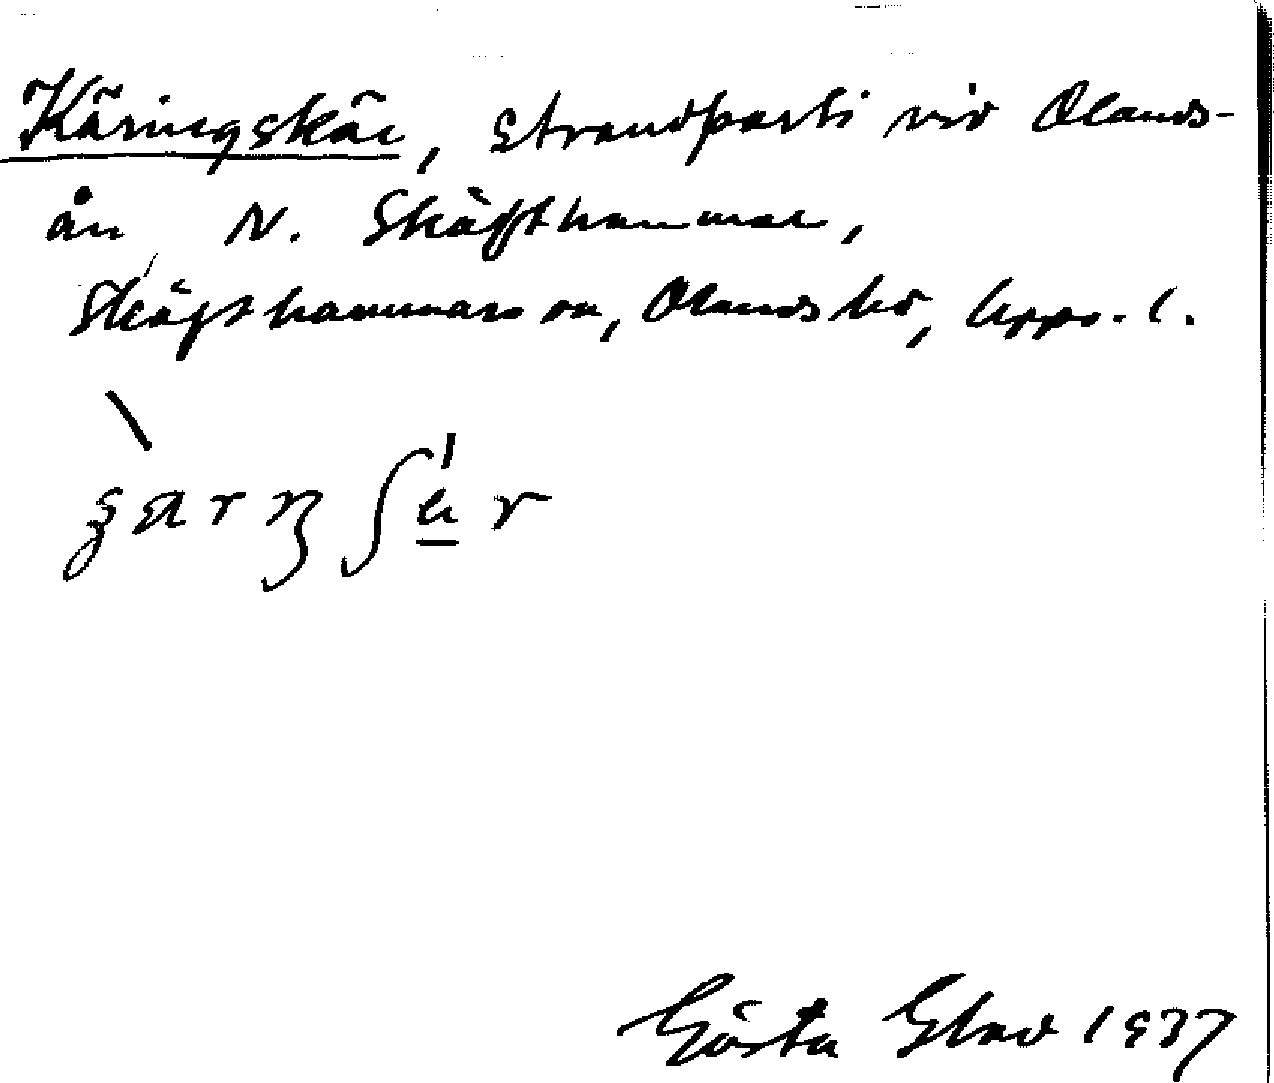 Käringskär, strandparti vid Olands-
ån N. Skäfthammar,
Skäfthammars sn, Olands hd, Upps. l.
Gösta 1937